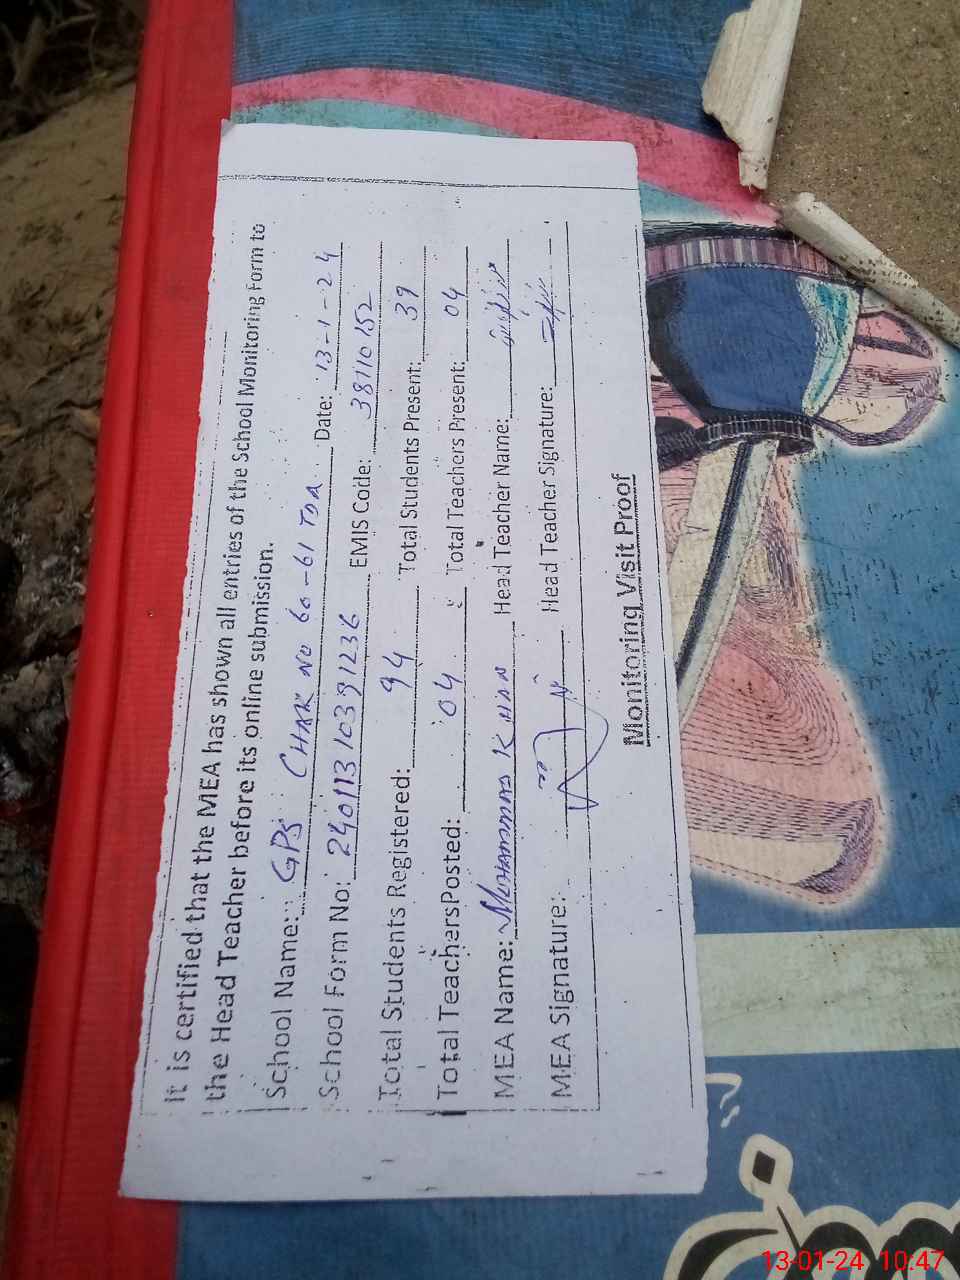 It is certified that the MEA has shown all entries of the School Monitoring Form to
the Head Teacher before its online submission.
School Name: GPS CHAK NO 60-61 TDA Date: 13-1-24
School Form No: 24011310391236 EMIS Code: 38110152
Total Students Registered: 94 Total Students Present: 39
Total TeachersPosted: 04 Total Teachers Present: 04
MEA Name: Muhammad KHAN Head Teacher Name:
MEA Signature: Head Teacher Signature:
Monitoring Visit Proof
13-01-24 10:47